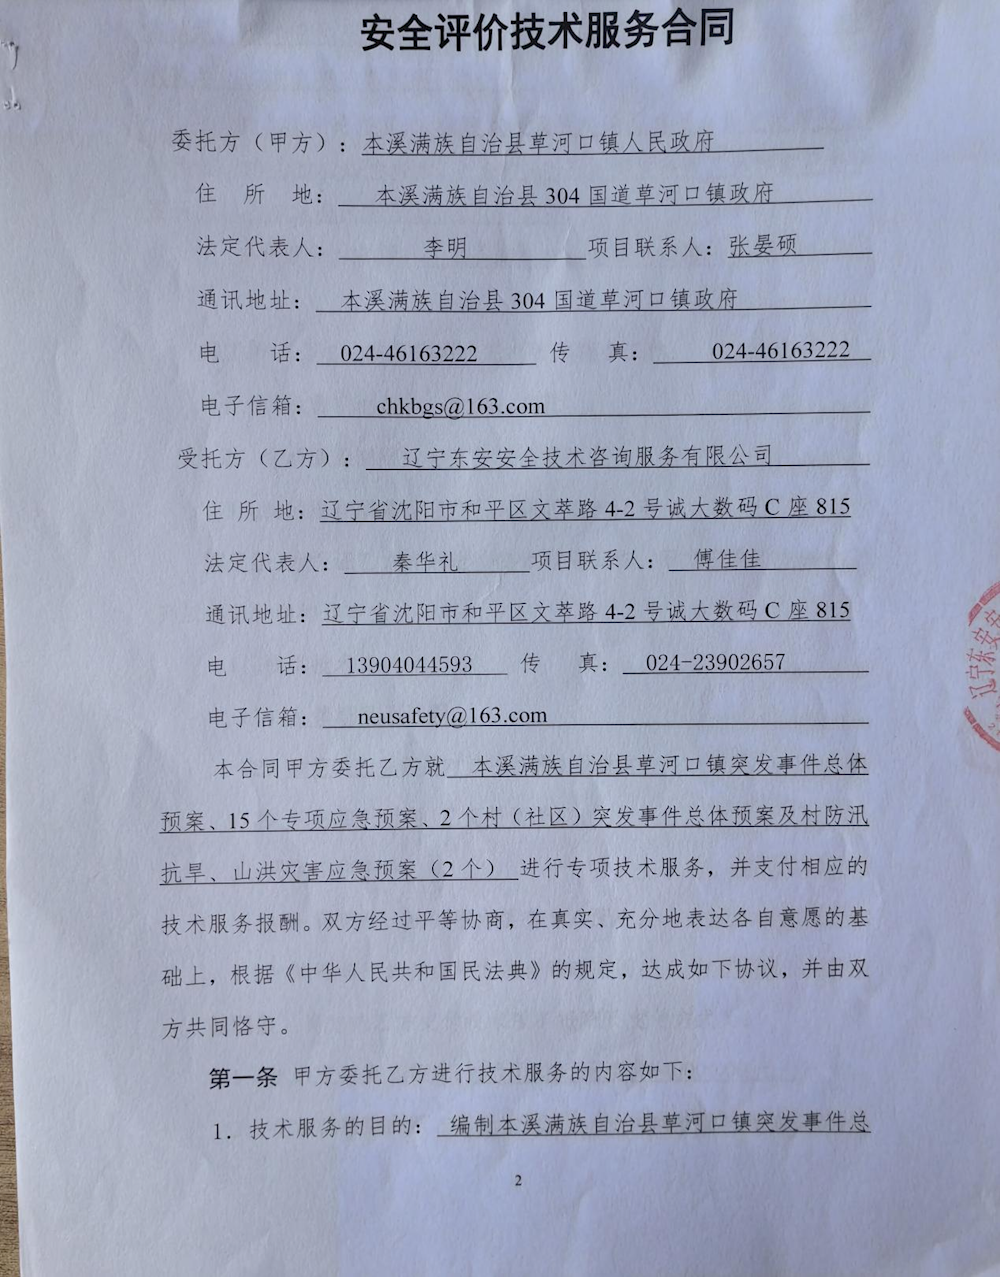 安全评价技术服务合同
委托方（甲方）：本溪满族自治县草河口镇人民政府
住 所 地： 本溪满族自治县 304 国道草河口镇政府
法定代表人： 李明 项目联系人：张晏硕
通讯地址： 本溪满族自治县 304 国道草河口镇政府
电 话： 024-46163222 传 真： 024-46163222
电子信箱： chkbgs@163.com
受托方（乙方）： 辽宁东安安全技术咨询服务有限公司
住 所 地：辽宁省沈阳市和平区文萃路 4-2 号诚大数码 C 座 815
法定代表人： 秦华礼 项目联系人： 傅佳佳
通讯地址：辽宁省沈阳市和平区文萃路 4-2 号诚大数码 C 座 815
电 话： 13904044593 传 真： 024-23902657
电子信箱： neusafety@163.com
本合同甲方委托乙方就 本溪满族自治县草河口镇突发事件总体
预案、15 个专项应急预案、2 个村（社区）突发事件总体预案及村防汛
抗旱、山洪灾害应急预案（2 个） 进行专项技术服务，并支付相应的
技术服务报酬。双方经过平等协商，在真实、充分地表达各自意愿的基
础上，根据《中华人民共和国民法典》的规定，达成如下协议，并由双
方共同恪守。
第一条 甲方委托乙方进行技术服务的内容如下：
1．技术服务的目的： 编制本溪满族自治县草河口镇突发事件总
2
辽宁东安安